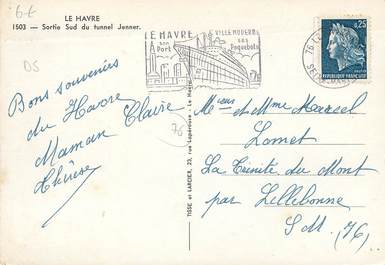 6€
LE HAVRE
1503 — Sortie Sud du tunnel Jenner.
DS
LE HAVRE
son
Port
VILLE MODERNE
ses
Paquebots
76 LE
0,25
REPUBLIQUE FRANÇAISE
Bons souvenirs
du Havre
Maman Claire
Thérèse
76
TISSE et LARCIER, 23, rue Lapérouse - Le Havre
Mieur et Mme Marcel
Lomet
La Trinité du Mont
par Lillebonne
S.M. (76)